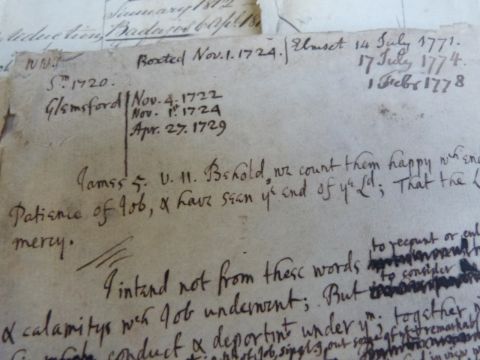 January 1812
Boxted Nov. 1. 1724.
Elmset 14 July 1771.
17 July 1774.
1 Febr 1778
1720.
Glemsford
Nov. 4. 1722
Nov. 1st 1724
Apr. 27. 1729
James 5. v. 11. Behold, we count them happy wch
Patience of Job, & have seen ye end of ye Ld; That the L
mercy.
I intend not from these words to recount or
to consider
& calamitys wch Job underwent; But
conduct & deportmt under ym. together
of Job, single out some of ye remarkabl